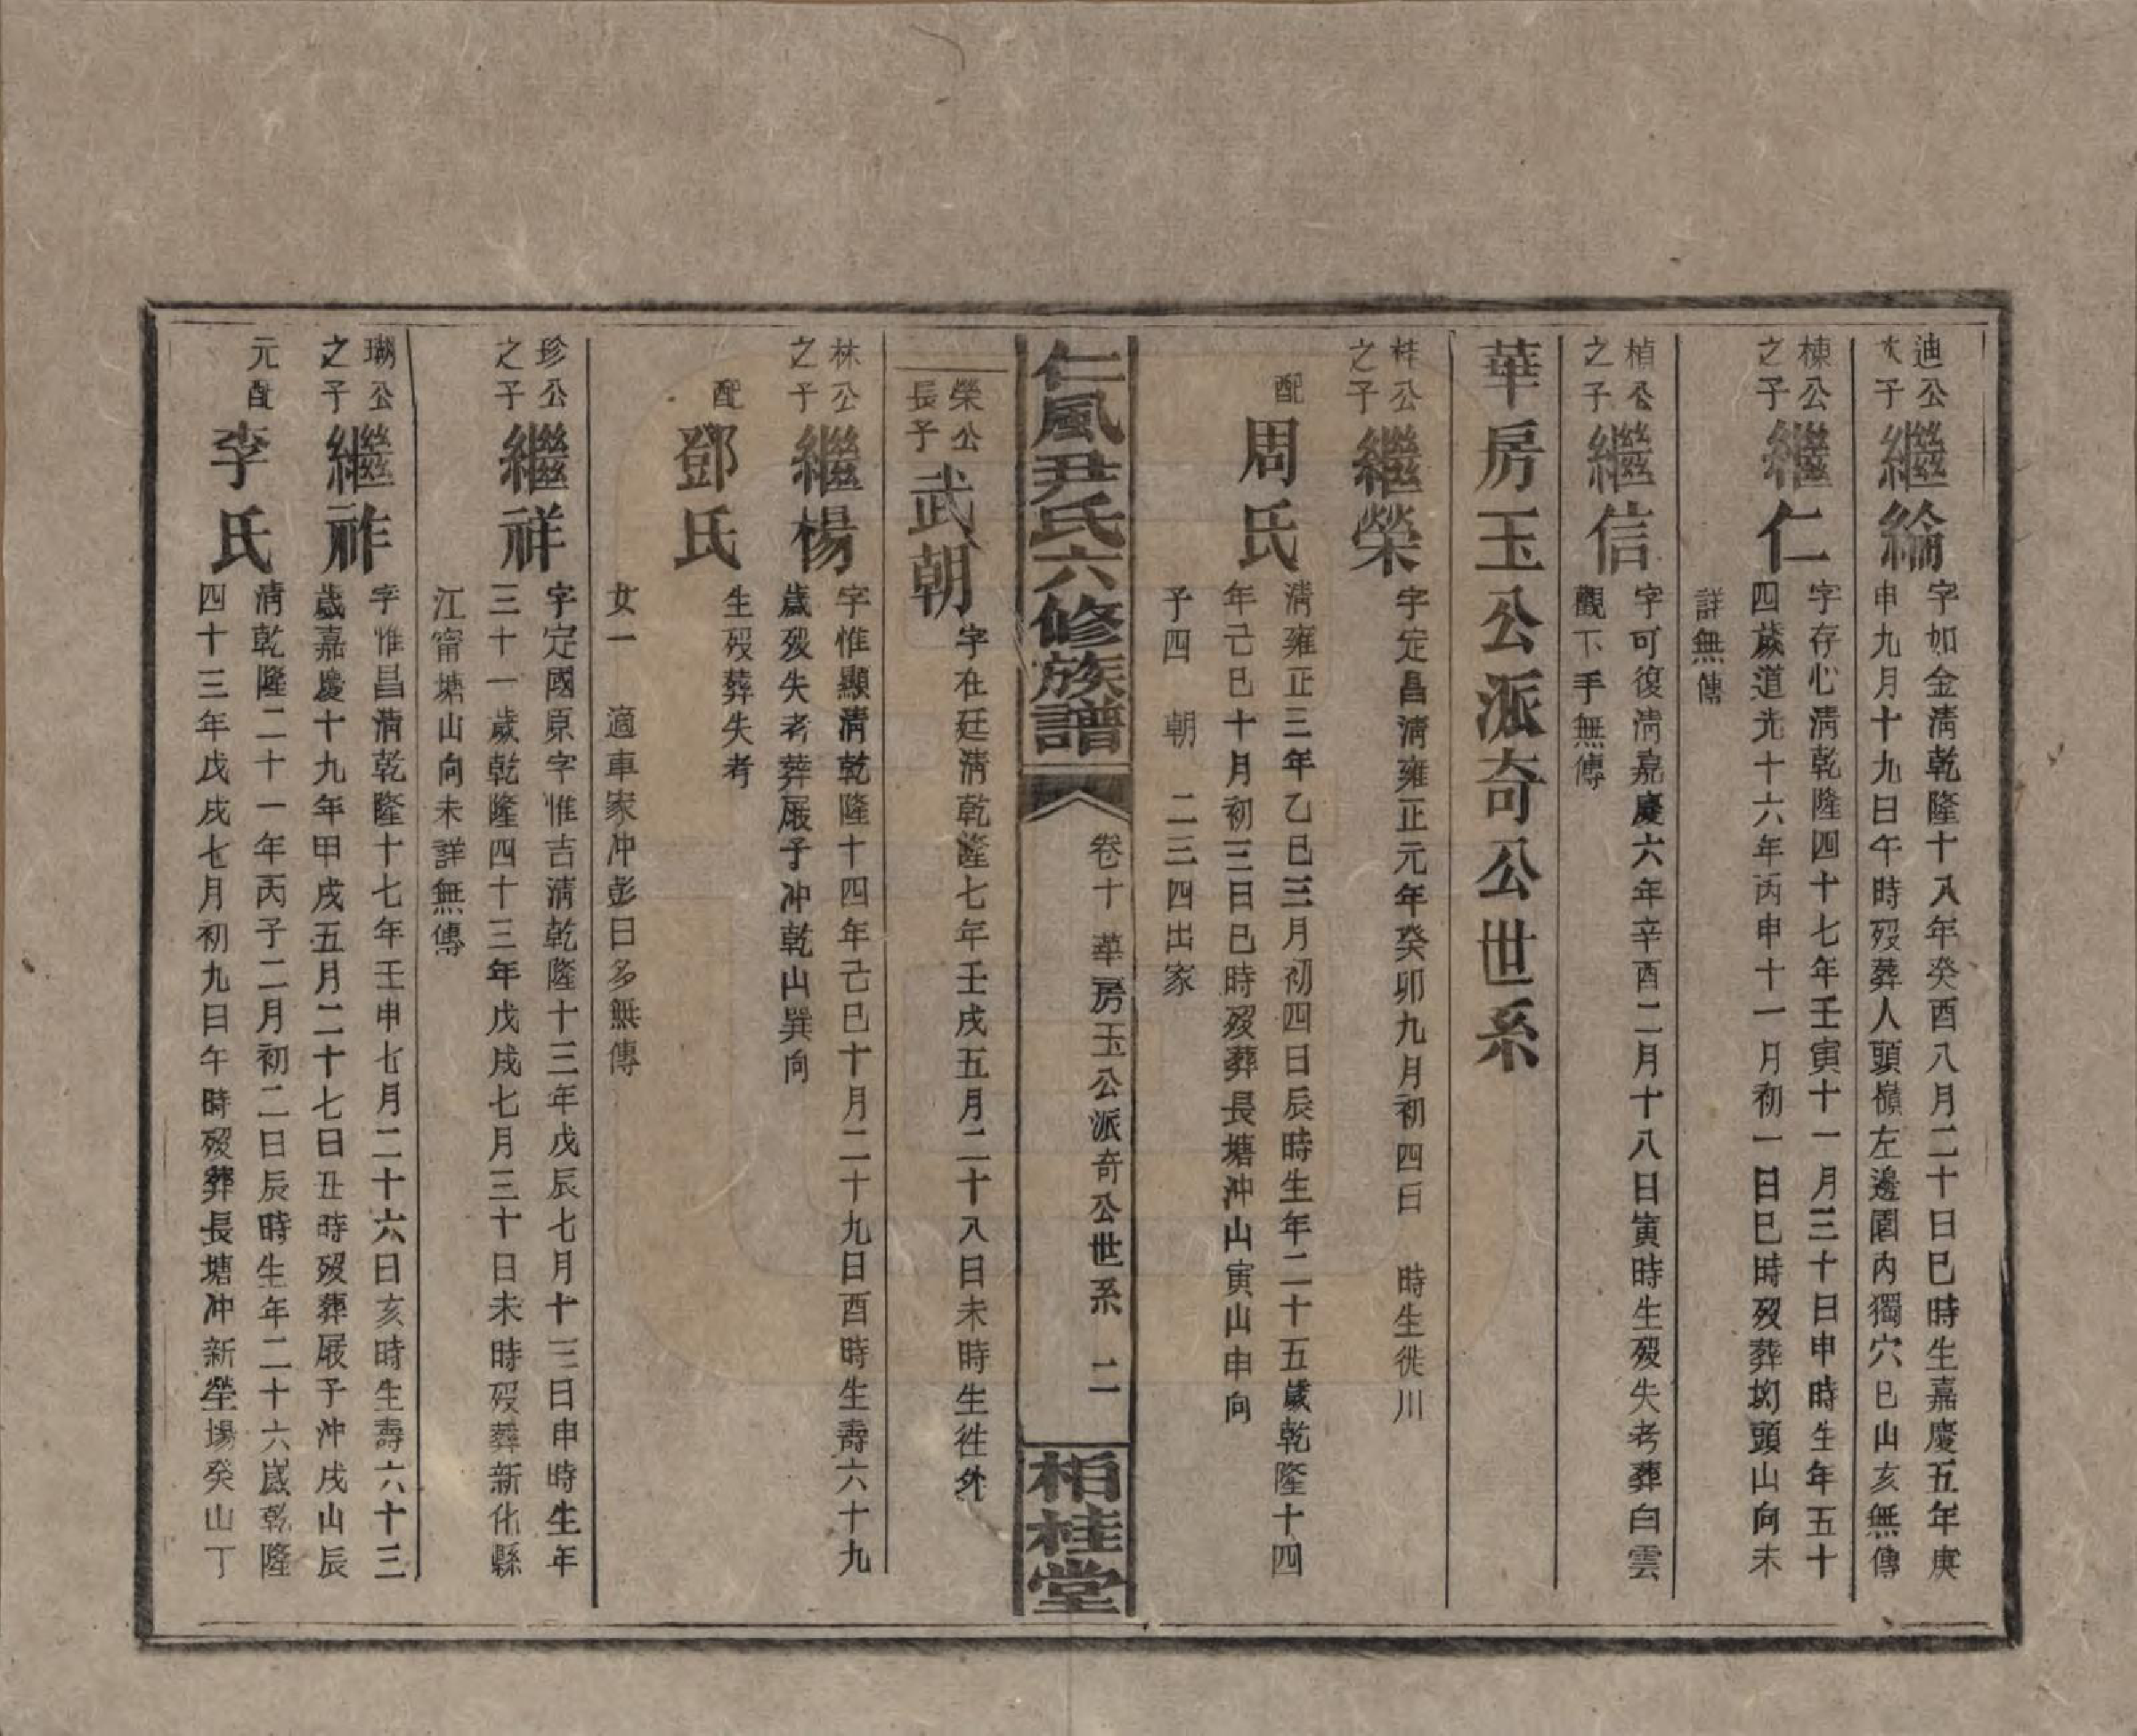 迪公
次子
繼綸
字如金清乾隆十八年癸酉八月二十日巳時生嘉慶五年庚
申九月十九日午時歿葬人頭嶺左邊園內獨穴巳山亥無傳
棟公
之子
繼仁
字存心清乾隆四十七年壬寅十一月三十日申時生年五十
四歲道光十六年丙申十一月初一日巳時歿葬坳頭山向未
詳無傳
楨公
之子
繼信
字可復清嘉慶六年辛酉二月十八日寅時生歿失考葬白雲
觀下手無傳
華房玉公派奇公世系
桂公
之子
繼榮
字定昌清雍正元年癸卯九月初四日 時生徙川
配
周氏
清雍正三年乙巳三月初四日辰時生年二十五歲乾隆十四
年己巳十月初三日巳時歿葬長塘冲山寅山申向
子四 朝 二三四出家
仁風尹氏六修族譜
卷十 華房玉公派奇公世系 二
栢桂堂
榮公
長子
武朝
字在廷清乾隆七年壬戌五月二十八日未時生徃外
林公
之子
繼楊
字惟顯清乾隆十四年己巳十月二十九日酉時生壽六十九
歲歿失考葬屐子冲乾山巽向
配
鄧氏
生歿葬失考
女一 適車家冲彭曰多無傳
珍公
之子
繼祥
字定國原字惟吉清乾隆十三年戊辰七月十三日申時生年
三十一歲乾隆四十三年戊戌七月三十日未時歿葬新化縣
江甯塘山向未詳無傳
瑚公
之子
繼祚
字惟昌清乾隆十七年壬申七月二十六日亥時生壽六十三
歲嘉慶十九年甲戌五月二十七日丑時歿葬屐子冲戌山辰
元配
李氏
清乾隆二十一年丙子二月初二日辰時生年二十六歲乾隆
四十三年戊戌七月初九日午時歿葬長塘冲新塋塲癸山丁